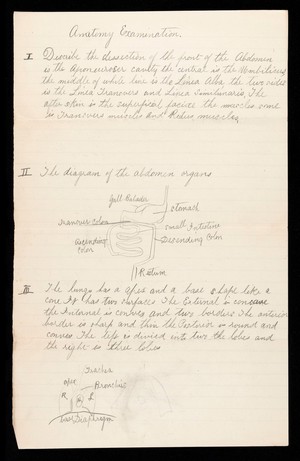 Anatomy Examination.
I Describe the dissection of the front of the Abdomen
is the Aponeuroses cavity the central is the Umbilicus
the middle of white line is the Linea Alba the two sides
is the Linea Transvers and Linea Similunaris. The
after skin is the superficial facies the muscles
is Transvers muscles and Rectus muscles.
II The diagram of the abdomen organs
Gall Bladder
stomach
Transvers Colon
small Intestine
Ascending
Colon
Descending Colon
Rectum
III The lungs has a apex and a base shape like a
cone It has two surfaces The External is concave
the Internal is convex and two borders The anterior
border is sharp and thin the Posterior is round and
convex The left is divided into two the lobes and
the right is three lobes
Trachea
apex
Bronchie
R L
base Diaphragm